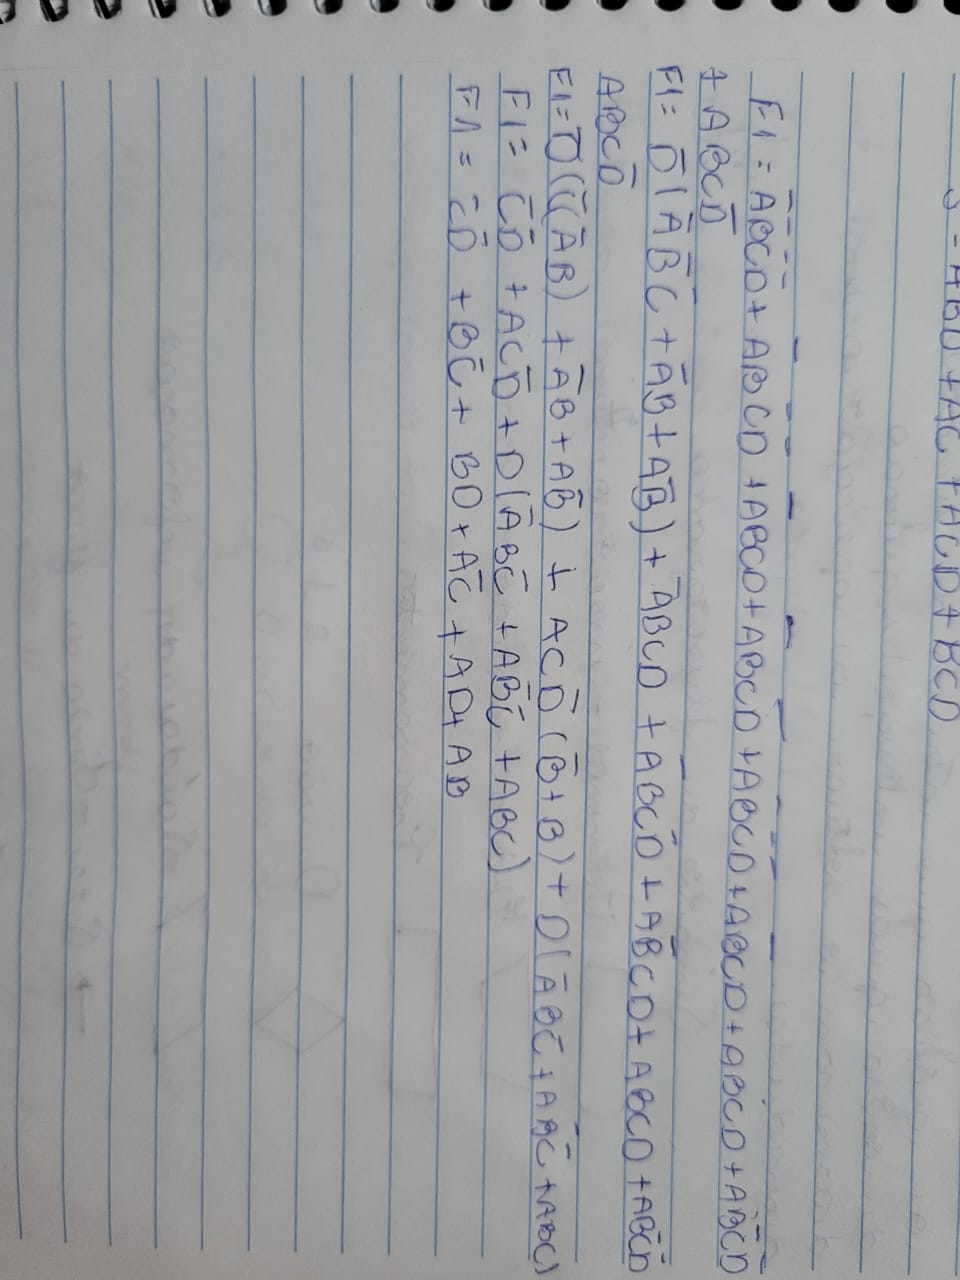 J = ABD + AC + ACD + BCD
F1 = A̅B̅C̅D̅ + A̅BCD + A̅BCD + A̅BC̅D + AB̅C̅D + ABCD + ABC̅D + AB̅C̅D̅
+ ABCD̅
F1 = D̅(A̅B̅C̅ + A̅B + AB̅) + A̅BCD + A̅BC̅D + AB̅C̅D + ABCD + AB̅C̅D̅
ABCD̅
F1 = D̅(C̅(A̅B) + A̅B + AB̅) + ACD̅(B̅ + B) + D(A̅BC̅ + AB̅C̅ + ABC)
F1 = C̅D̅ + ACD̅ + D(A̅BC̅ + AB̅C̅ + ABC)
F1 = C̅D̅ + BC̅ + BD + AC̅ + AD + AB